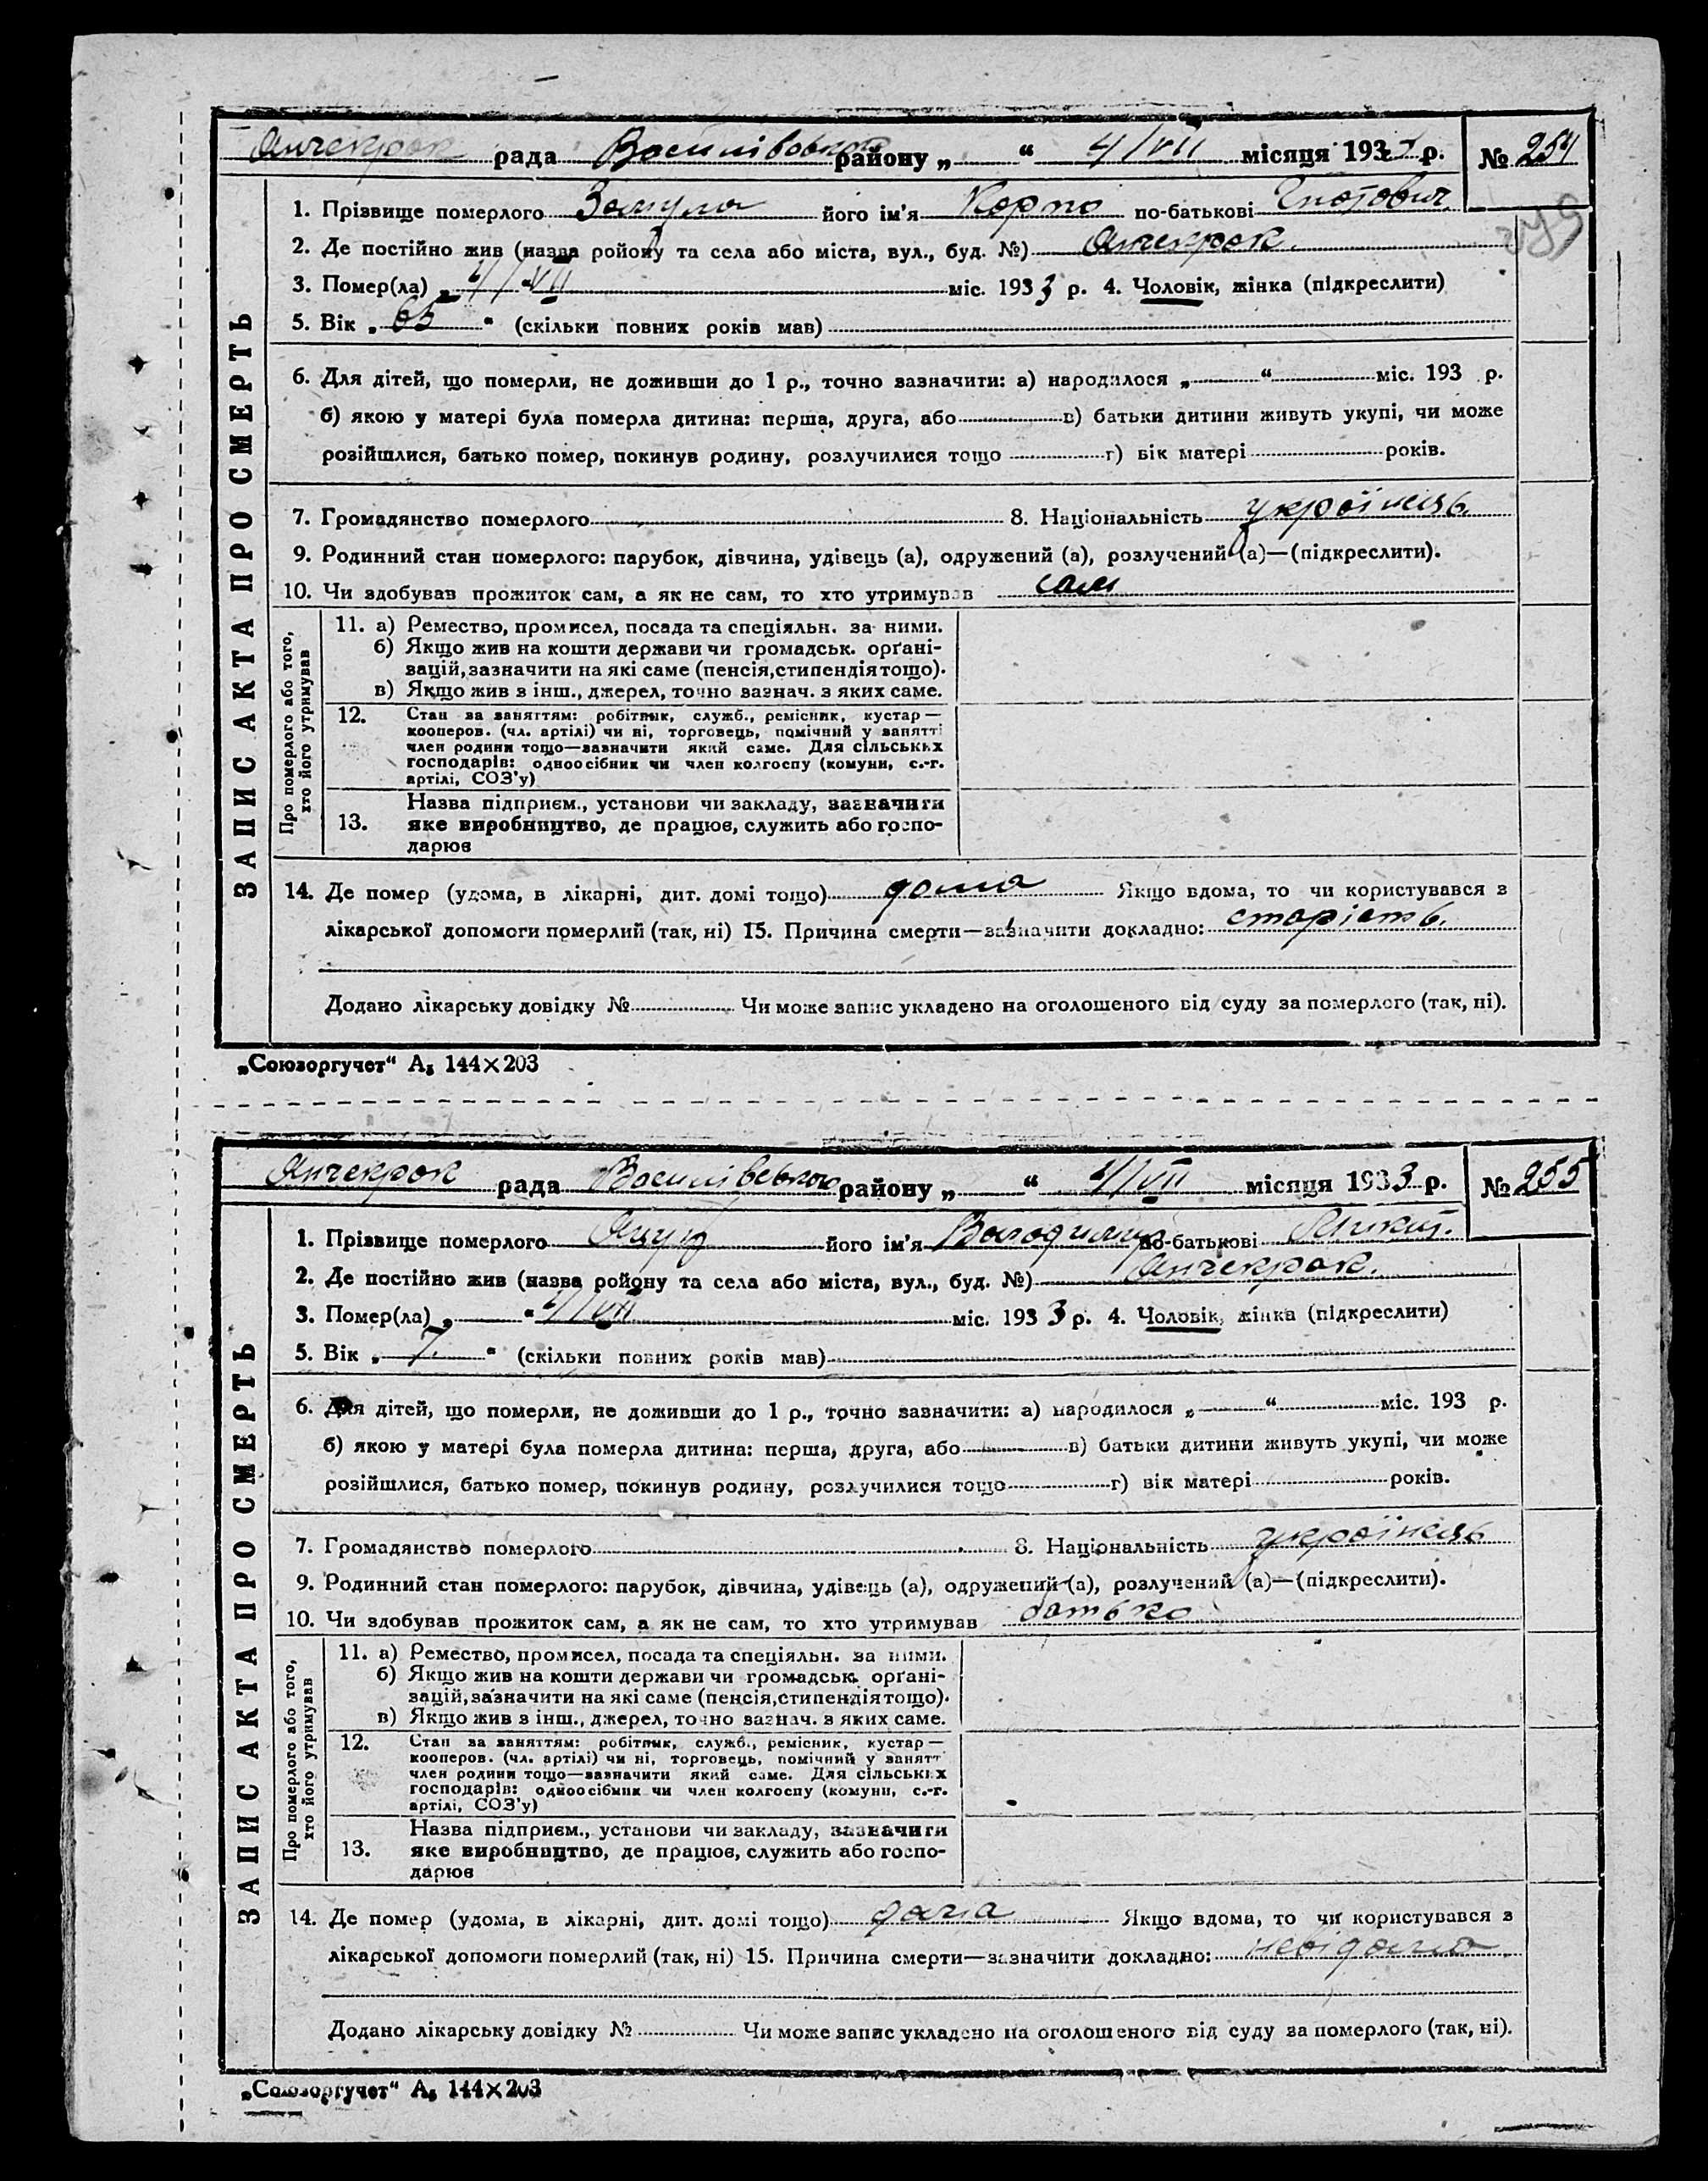 Янчекрак рада Василівського району „ “ 4/VII місяця 1933 р. № 254
1. Прізвище померлого Замула його ім'я Карпо по-батькові Гнатович
2. Де постійно жив (назва ройону та села або міста, вул., буд. №) Янчекрак.
3. Помер(ла) „ 4/VII “ міс. 1933 р. 4. Чоловік, жінка (підкреслити)
5. Вік „ 65 “ (скільки повних років мав)
6. Для дітей, що померли, не доживши до 1 р., точно зазначити: а) народилося „ “ міс. 193 р.
б) якою у матері була померла дитина: перша, друга, або в) батьки дитини живуть укупі, чи може
розійшлися, батько помер, покинув родину, розлучилися тощо г) вік матері років.
7. Громадянство померлого 8. Національність українець
9. Родинний стан померлого: парубок, дівчина, удівець (а), одружений (а), розлучений (а)—(підкреслити).
10. Чи здобував прожиток сам, а як не сам, то хто утримував сам
ЗАПИС АКТА ПРО СМЕРТЬ
Про померлого або того,
хто його утримував
11. а) Ремество, промисел, посада та спеціяльн. за ними.
б) Якщо жив на кошти держави чи громадськ. орґані-
зацій, зазначити на які саме (пенсія, стипендія тощо).
в) Якщо жив з інш., джерел, точно зазнач. з яких саме.
12. Стан за заняттям: робітник, служб., ремісник, кустар —
кооперов. (чл. артілі) чи ні, торговець, помічний у занятті
член родини тощо—зазначити який саме. Для сільських
господарів: одноосібник чи член колгоспу (комуни, с.-г.
артілі, СОЗ'у)
Назва підприєм., установи чи закладу, зазначити
13. яке виробництво, де працює, служить або госпо-
дарює
14. Де помер (удома, в лікарні, дит. домі тощо) дома Якщо вдома, то чи користувався з
лікарської допомоги померлий (так, ні) 15. Причина смерти—зазначити докладно: старість.
Додано лікарську довідку № Чи може запис укладено на оголошеного від суду за померлого (так, ні).
„Союзоргучет“ А5 144×203
Янчекрак рада Василівського району „ “ 4/VII місяця 1933 р. № 255
1. Прізвище померлого Яцун його ім'я Володимир по-батькові Микит.
2. Де постійно жив (назва ройону та села або міста, вул., буд. №) Янчекрак.
3. Помер(ла) „ “ 4/VII міс. 1933 р. 4. Чоловік, жінка (підкреслити)
5. Вік „ 7. “ (скільки повних років мав)
6. Для дітей, що померли, не доживши до 1 р., точно зазначити: а) народилося „ “ міс. 193 р.
б) якою у матері була померла дитина: перша, друга, або в) батьки дитини живуть укупі, чи може
розійшлися, батько помер, покинув родину, розлучилися тощо г) вік матері років.
7. Громадянство померлого 8. Національність українець
9. Родинний стан померлого: парубок, дівчина, удівець (а), одружений (а), розлучений (а)—(підкреслити).
10. Чи здобував прожиток сам, а як не сам, то хто утримував батько
ЗАПИС АКТА ПРО СМЕРТЬ
Про померлого або того,
хто його утримував
11. а) Ремество, промисел, посада та спеціяльн. за ними.
б) Якщо жив на кошти держави чи громадськ. орґані-
зацій, зазначити на які саме (пенсія, стипендія тощо).
в) Якщо жив з інш., джерел, точно зазнач. з яких саме.
12. Стан за заняттям: робітник, служб., ремісник, кустар —
кооперов. (чл. артілі) чи ні, торговець, помічний у занятт
член родини тощо—зазначити який саме. Для сільських
господарів: одноосібник чи член колгоспу (комуни, с.-г.
артілі, СОЗ'у)
Назва підприєм., установи чи закладу, зазначити
13. яке виробництво, де працює, служить або госпо-
дарює
14. Де помер (удома, в лікарні, дит. домі тощо) дома Якщо вдома, то чи користувався з
лікарської допомоги померлий (так, ні) 15. Причина смерти—зазначити докладно: невідома
Додано лікарську довідку № Чи може запис укладено на оголошеного від суду за померлого (так, ні).
„Союзоргучет“ А5 144×203